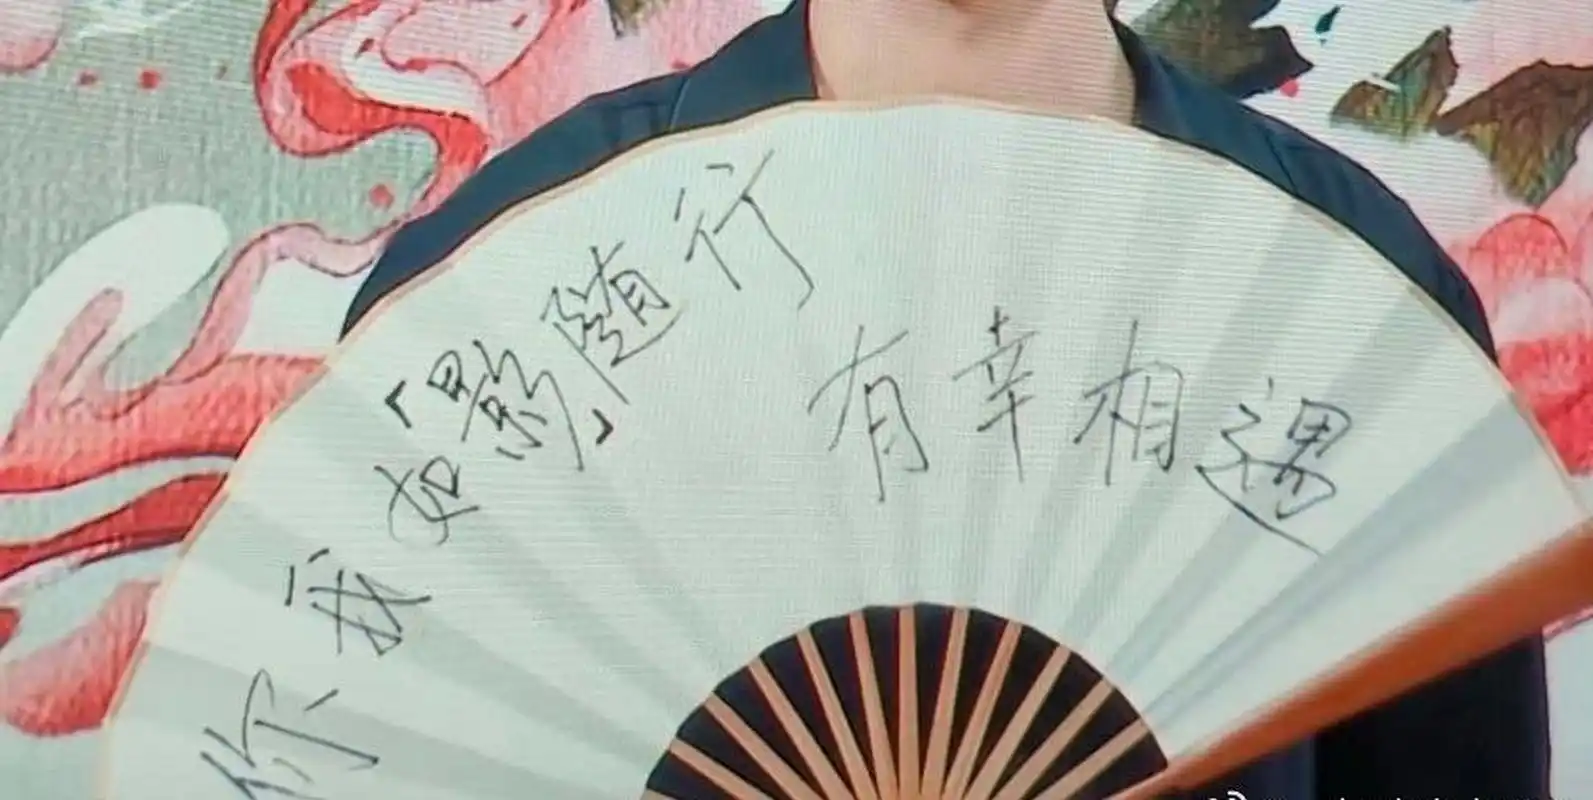 你我如「影」随行
有幸相遇